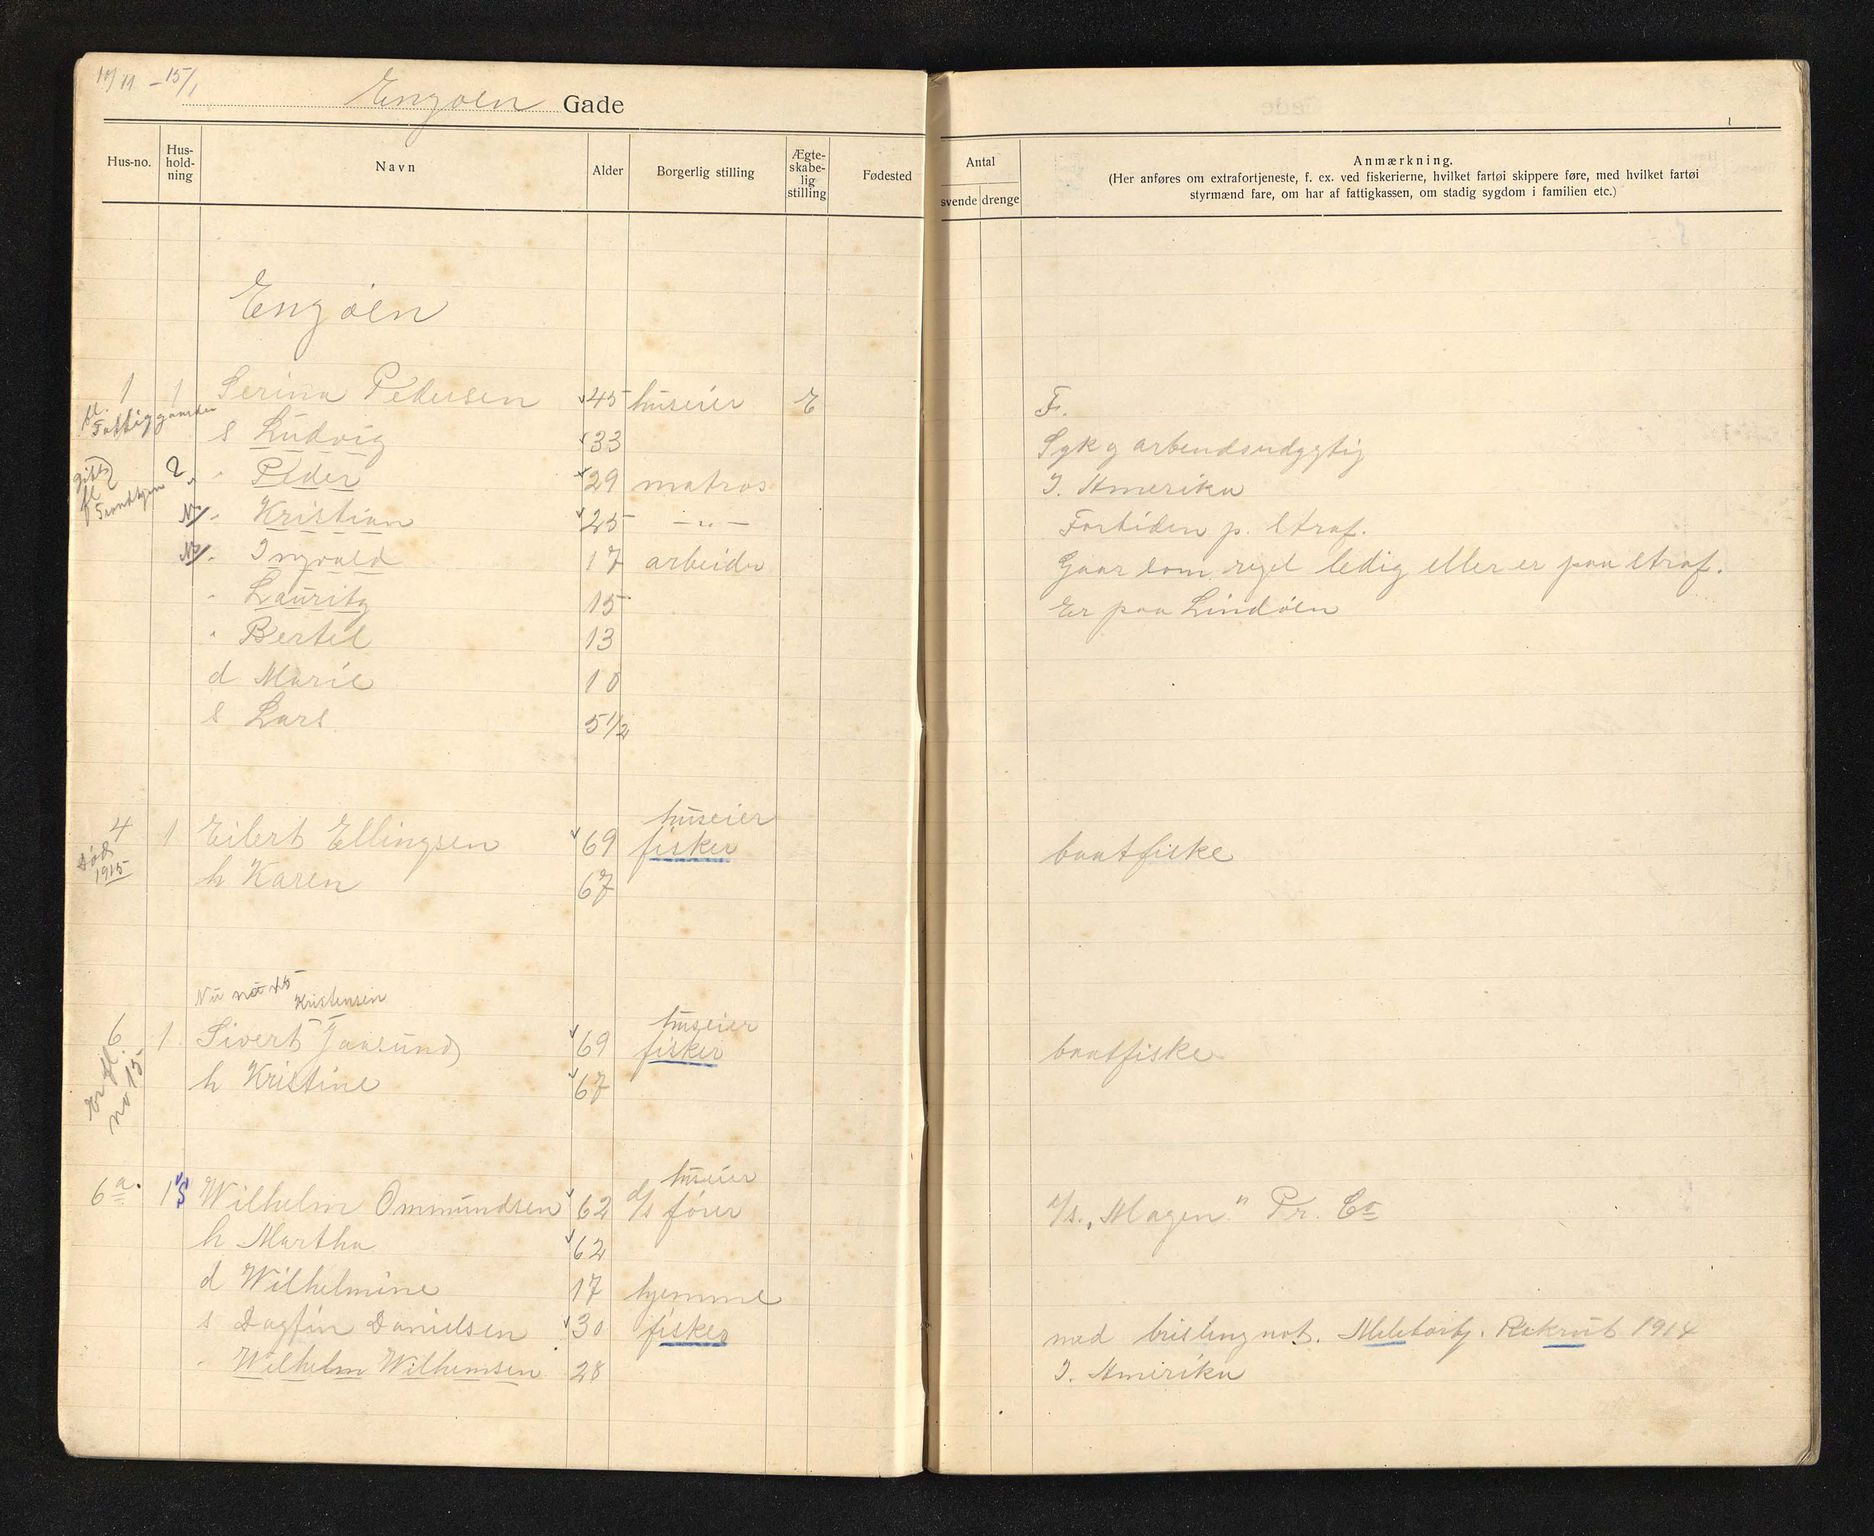 Engøen Gade
Hus-no.
Hus-
hold-
ning
Navn
Alder
Borgerlig stilling
Ægte-
skabe-
lig
stilling
Fødested
Antal
svende drenge
Anmærkning.
(Her anføres om extrafortjeneste, f. ex. ved fiskerierne, hvilket fartøi skippere føre, med hvilket fartøi
styrmænd fare, om har af fattigkassen, om stadig sygdom i familien etc.)
Engøen
1 1 Serina Pedersen 45 huseier E F.
fl.
Fattiggaarden
s Ludvig 33 Syk og arbeidsudygtig
gift
fl
2 " Peder 29 matros I. Amerika
" Kristian 25 — " — Fortiden p. straf.
" Ingvald 17 arbeider Gaar som regel ledig eller er paa straf.
" Lauritz 15 Er paa Lindøen
" Bertel 13
d Marie 10
s Lars 5 1/2
huseier
4 1 Eilert Ellingsen 69 fisker baatfiske
død
1915
h Karen 67
Kristensen
huseier
6 1 Sivert Jaasund 69 fisker baatfiske
er fl.
no 15
h Kristine 67
huseier
6a. 1 Wilhelm Ommundsen 62 d/s fører a/s. „Magen" Pr. Co
h Martha 62
d Wilhelmine 17 hjemme
s Dagfin Danielsen 30 fisker med brislingnot. Rekrut 1914
" Wilhelm Wilhemsen 28 I. Amerika